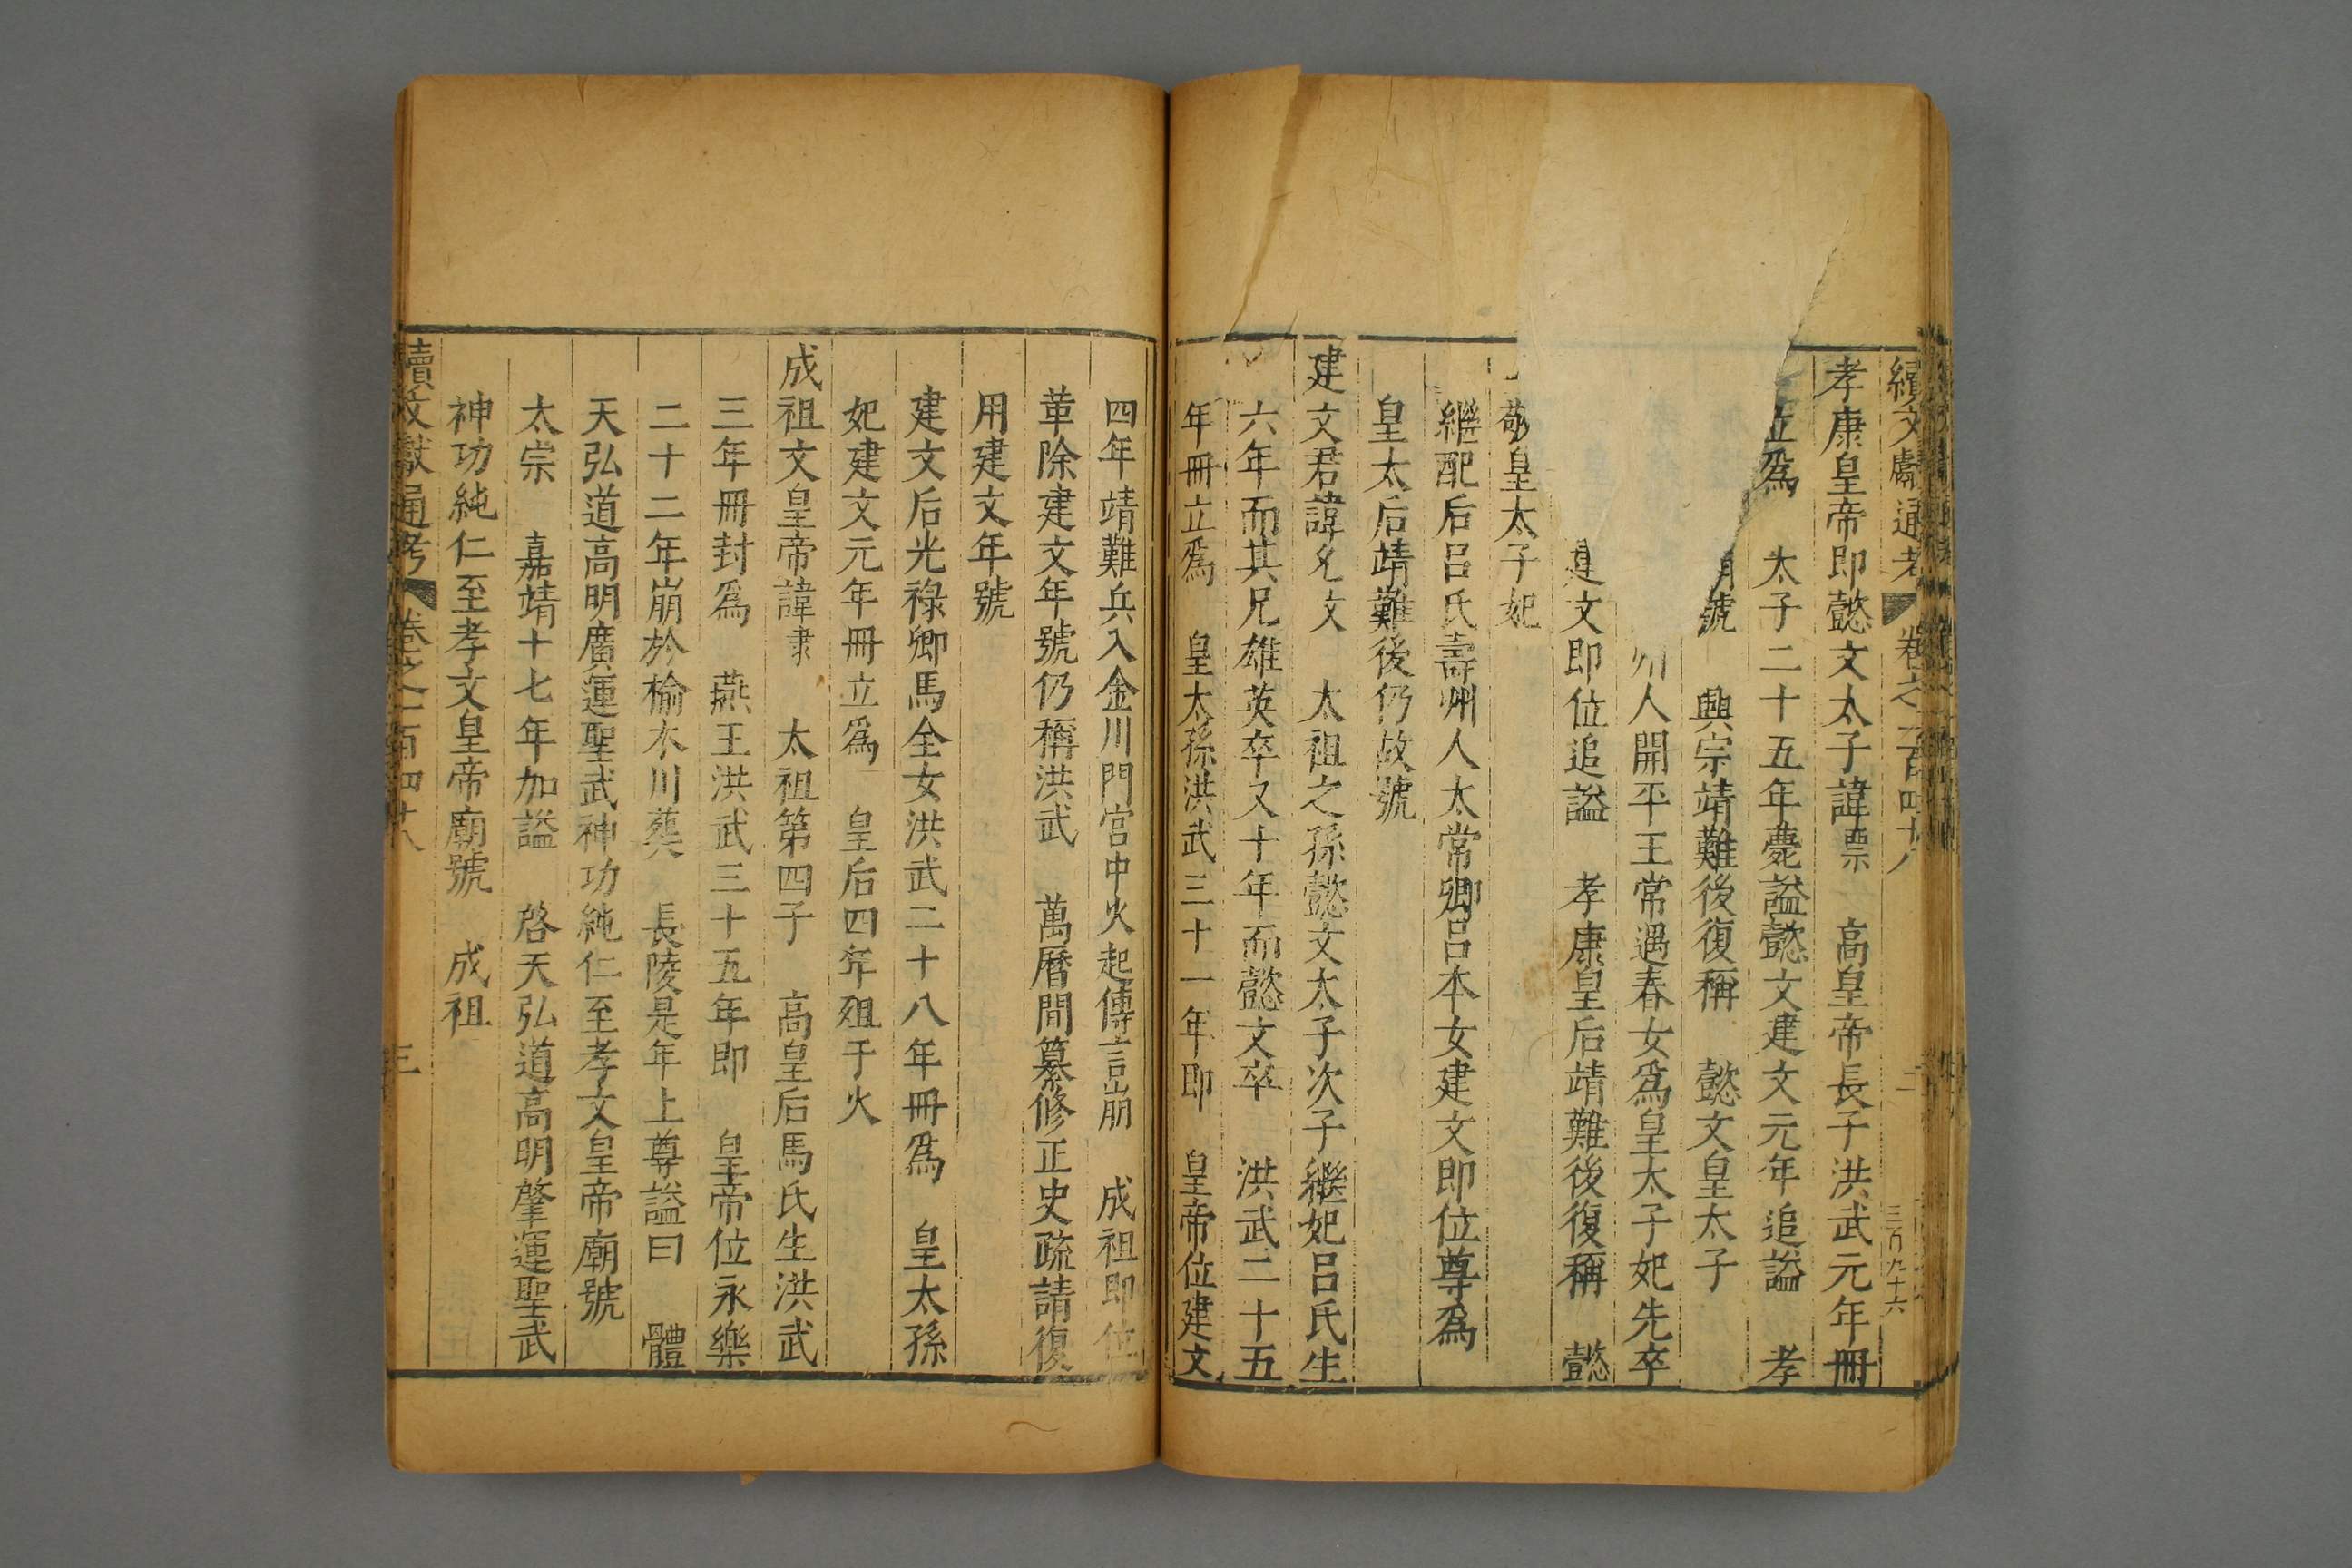 續文獻通考 卷之一百四十八 二 三百九十六
孝康皇帝即懿文太子諱票 高皇帝長子洪武元年冊
立爲 太子二十五年薨謚懿文建文元年追謚 孝
號 興宗靖難後復稱 懿文皇太子
州人開平王常遇春女爲皇太子妃先卒
建文即位追謚 孝康皇后靖難後復稱 懿
敬皇太子妃
繼配后呂氏壽州人太常卿呂本女建文即位尊爲
皇太后靖難後仍故號
建文君諱允文 太祖之孫懿文太子次子繼妃呂氏生
六年而其兄雄英卒又十年而懿文卒 洪武二十五
年冊立爲 皇太孫洪武三十一年即 皇帝位建文
四年靖難兵入金川門宮中火起傳言崩 成祖即位
革除建文年號仍稱洪武 萬曆間纂修正史疏請復
用建文年號
建文后光祿卿馬全女洪武二十八年冊爲 皇太孫
妃建文元年冊立爲 皇后四年殂于火
成祖文皇帝諱隶 太祖第四子 高皇后馬氏生洪武
三年冊封爲 燕王洪武三十五年即 皇帝位永樂
二十二年崩於榆木川葬 長陵是年上尊謚曰 體
天弘道高明廣運聖武神功純仁至孝文皇帝廟號
太宗 嘉靖十七年加謚 啓天弘道高明肇運聖武
神功純仁至孝文皇帝廟號 成祖
續文獻通考 卷之一百四十八 三